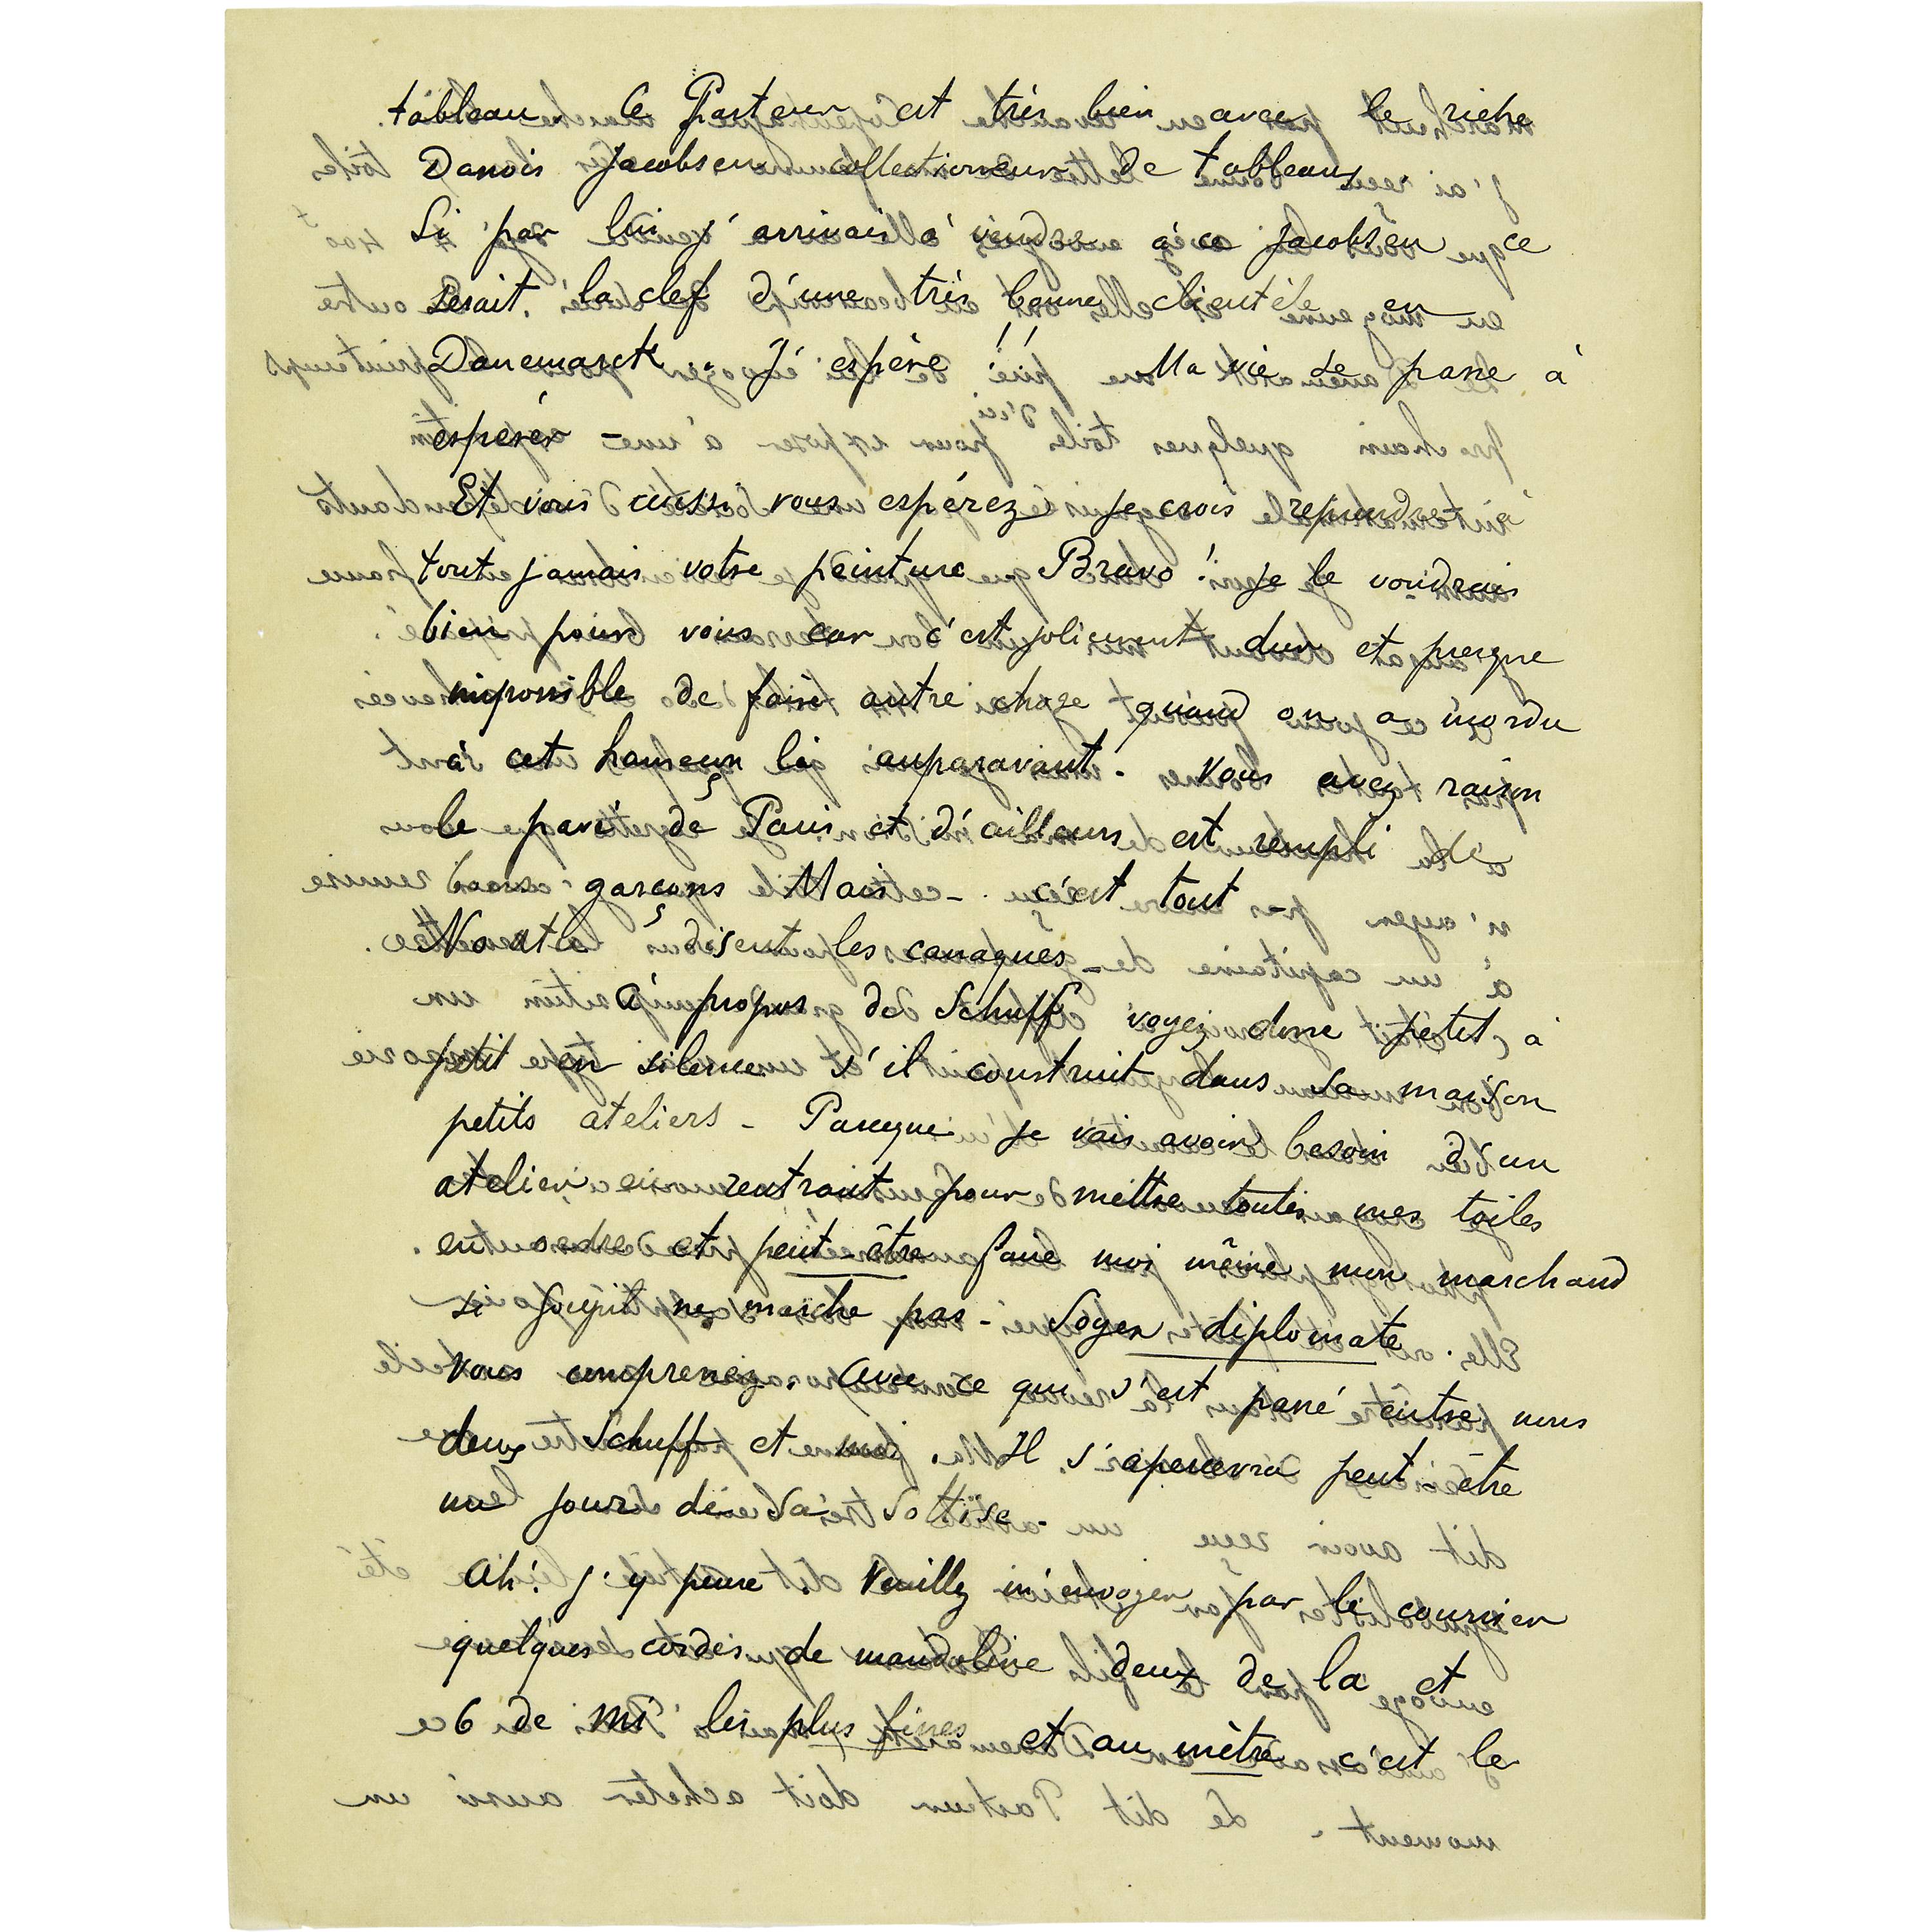 tableau. Ce Pasteur est très bien avec le riche
Danois Jacobsen collectionneur de tableaux.
Si par lui j'arrivais à vendre à ce Jacobsen ce
serait la clef d'une très bonne clientèle en
Danemarck. J'espère !! Ma vie se passe à
espérer –
Et vous aussi vous espérez je crois reprendre à
tout jamais votre peinture Bravo ! je le voudrais
bien pour vous car c'est joliment dur et presque
impossible de faire autre chose quand on a mordu
à cet hameçon là auparavant. Vous avez raison
le pavé de Paris et d'ailleurs est rempli de
bons garçons Mais – c'est tout –
Noatu disent les canaques –
à propos de Schuff voyez donc petit à
petit en silence s'il construit dans sa maison
petits ateliers – Parceque je vais avoir besoin d'un
atelier en rentrant pour mettre toutes mes toiles
en ordre et peut-être faire moi même mon marchand
si Goupil ne marche pas – Soyez diplomate.
Vous comprenez. Avec ce qui s'est passé entre nous
deux Schuff et moi. Il s'apercevra peut être
un jour de sa sottise –
Ah ! j'y pense. Veuillez m'envoyer par le courrier
quelques cordes de mandoline deux de la et
6 de mi les plus fines et au mètre c'est le